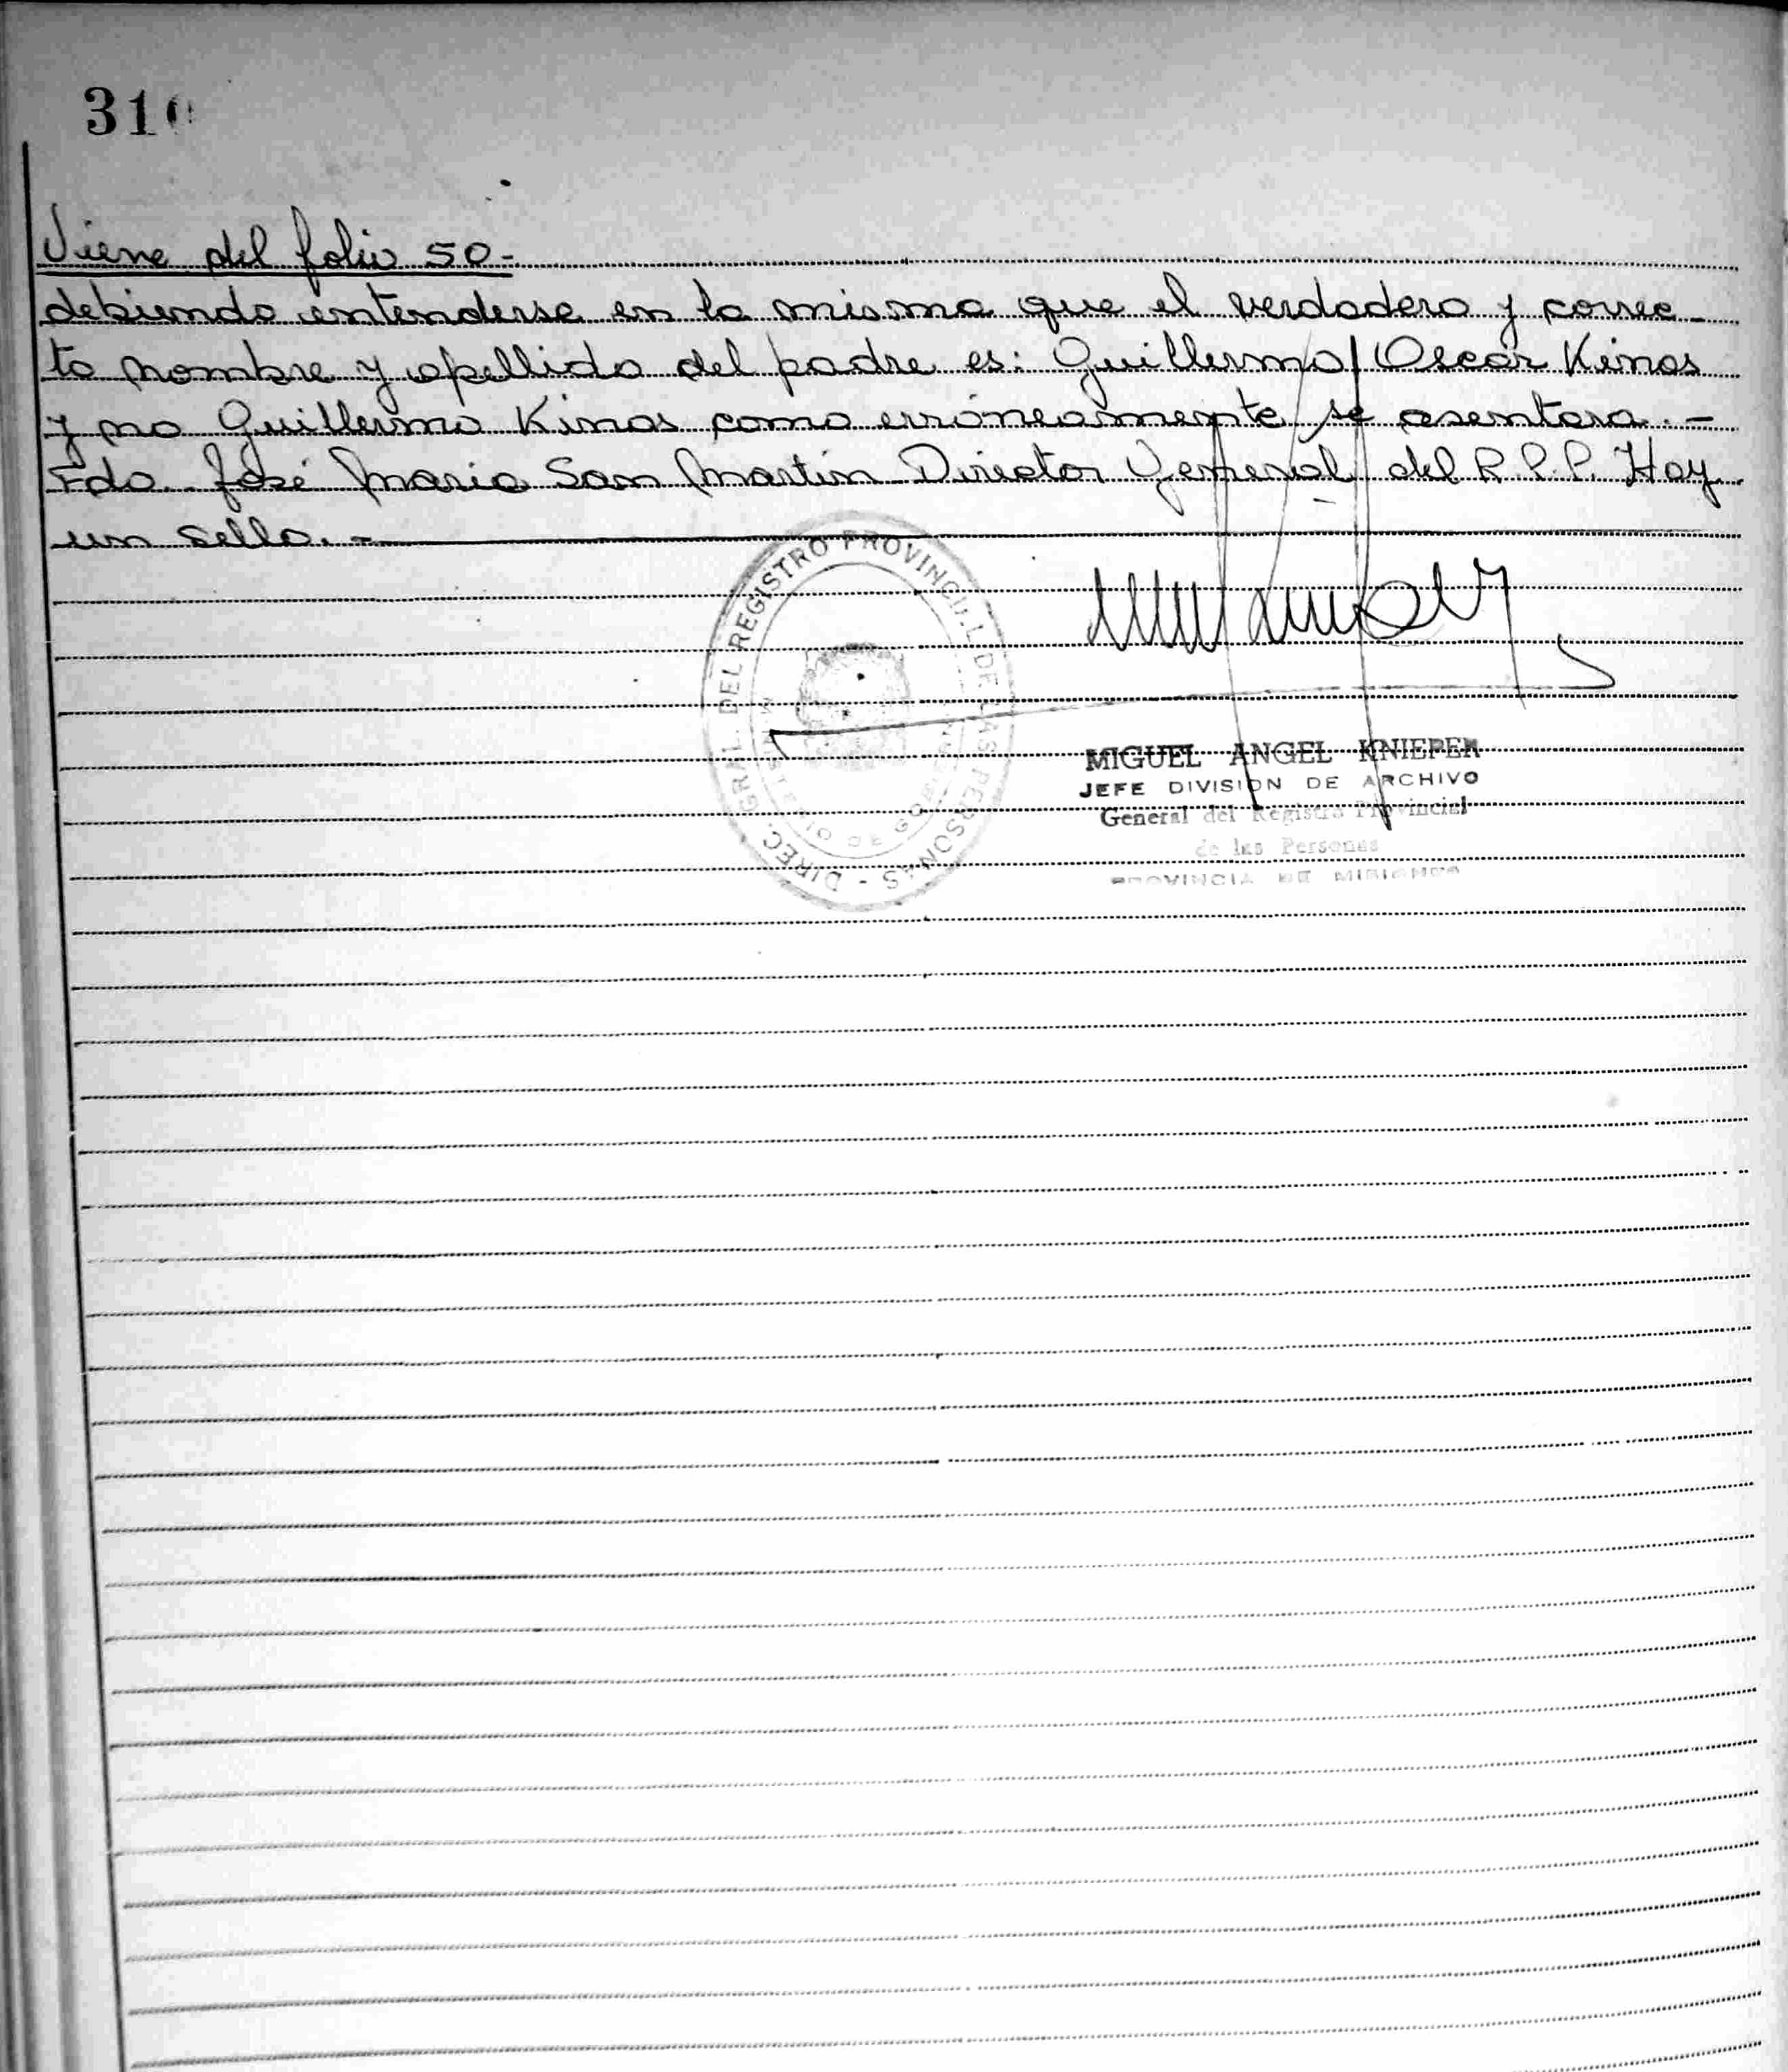 310
Viene del folio 50-
debiendo entenderse en la misma que el verdadero y correc-
to nombre y apellido del padre es: Guillermo Oscar Kinas
y no Guillermo Kinas como erróneamente se asentara.-
Fdo. José Maria San Martin Director General del R.P.P. Hay
un sello.-
DIREC. GRAL. DEL REGISTRO PROVINCIAL DE LAS PERSONAS -
MIGUEL ANGEL KNIEPER
JEFE DIVISION DE ARCHIVO
General del Registro Provincial
de las Personas
PROVINCIA DE MISIONES